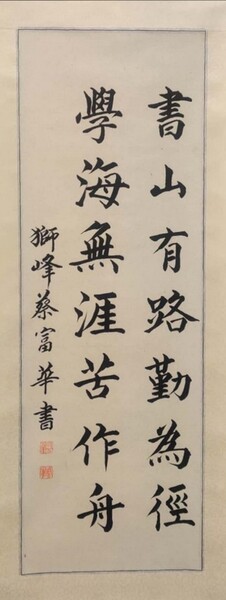 書山有路勤為徑
學海無涯苦作舟
獅峰蔡富華書